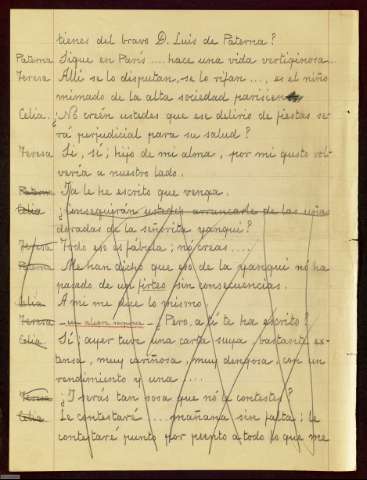 tienes del bravo D. Luis de Paterna?
Paterna Sigue en París .... hace una vida vertiginosa...
Teresa Allí se lo disputan, se lo rifan ..., es el niño
mimado de la alta sociedad parisien
Celia. ¿No creén ustedes que ese delirio de fiestas se-
rá perjudicial para su salud?
Teresa Sí, sí; hijo de mi alma, por mi gusto vol-
vería a nuestro lado.
Paterna Ya le he escrito que venga.
Celia ¿Conseguirán ustedes arrancarle de las uñas
doradas de la señorita yanqui?
Teresa Todo eso es fábula; no creas....
Paterna Me han dicho que eso de la yanqui no ha
pasado de un flirteo sin consecuencias.
Celia A mi me dice lo mismo.
Teresa ¿Pero, a tí te ha escrito?
Celia Sí; ayer tuve una carta suya, bastante ex-
tensa, muy cariñosa, muy dengosa, con un
rendimiento y una ....
Teresa ¿Y serás tan sosa que no le contestes?
Celia Le contestaré .... mañana sin falta; le
contestaré punto por punto a todo lo que me